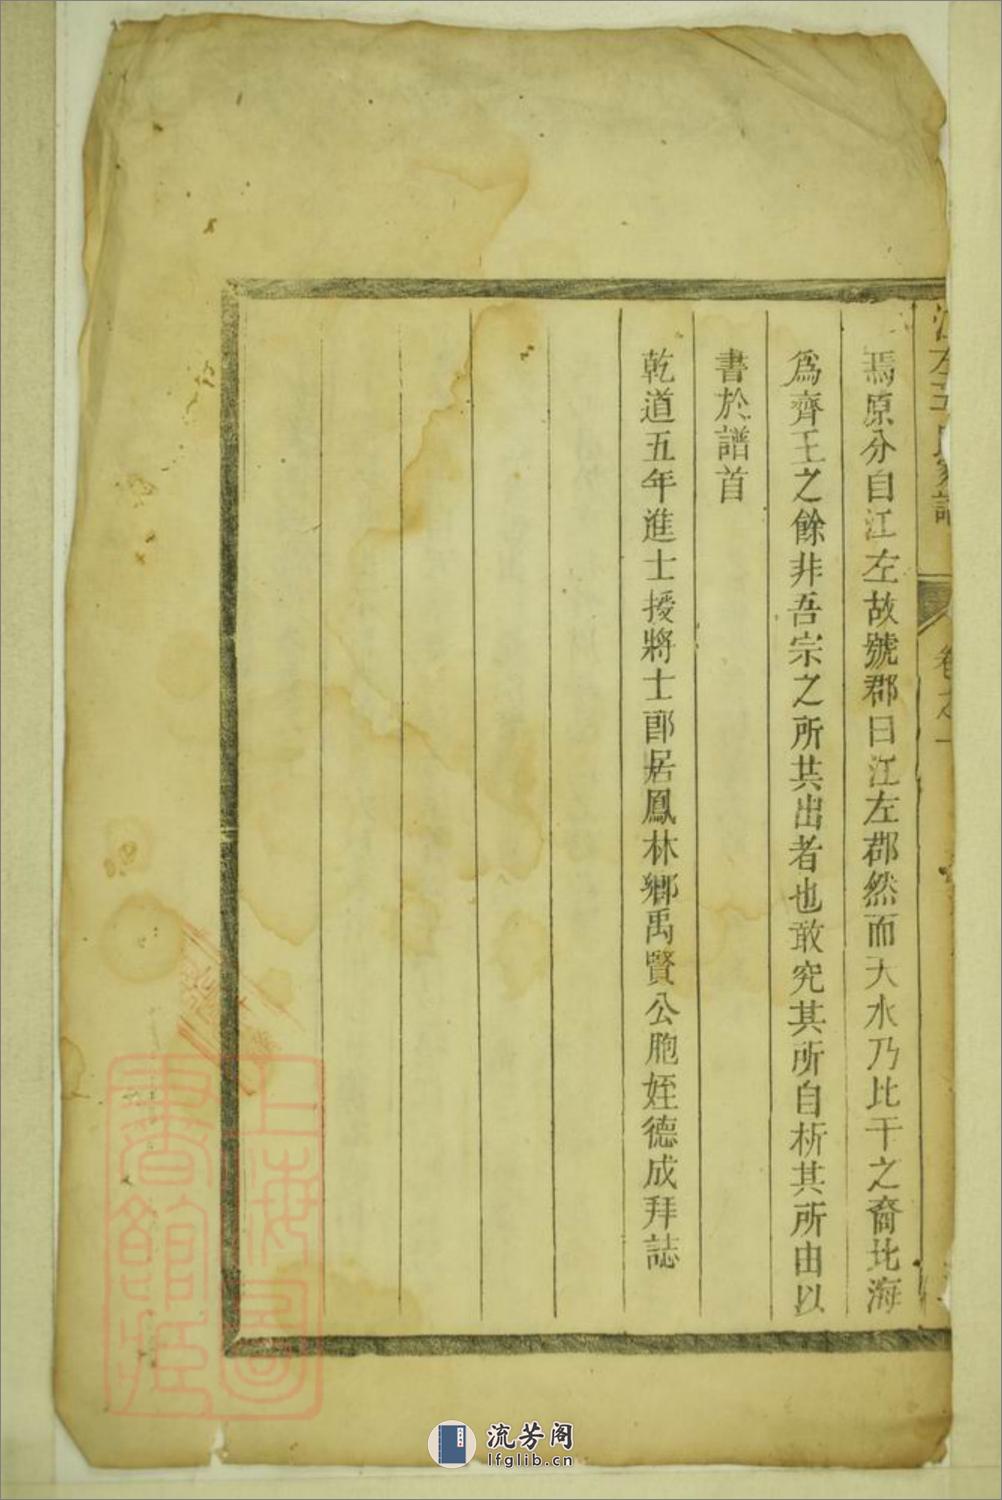 江左王氏家譜 卷之一
焉原分自江左故號郡曰江左郡然而天水乃比干之裔北海
爲齊王之餘非吾宗之所共出者也敢究其所自析其所由以
書於譜首
乾道五年進士授將士郎居鳳林鄉禹賢公胞姪德成拜誌
上海圖書館藏
流芳阁
lfglib.cn